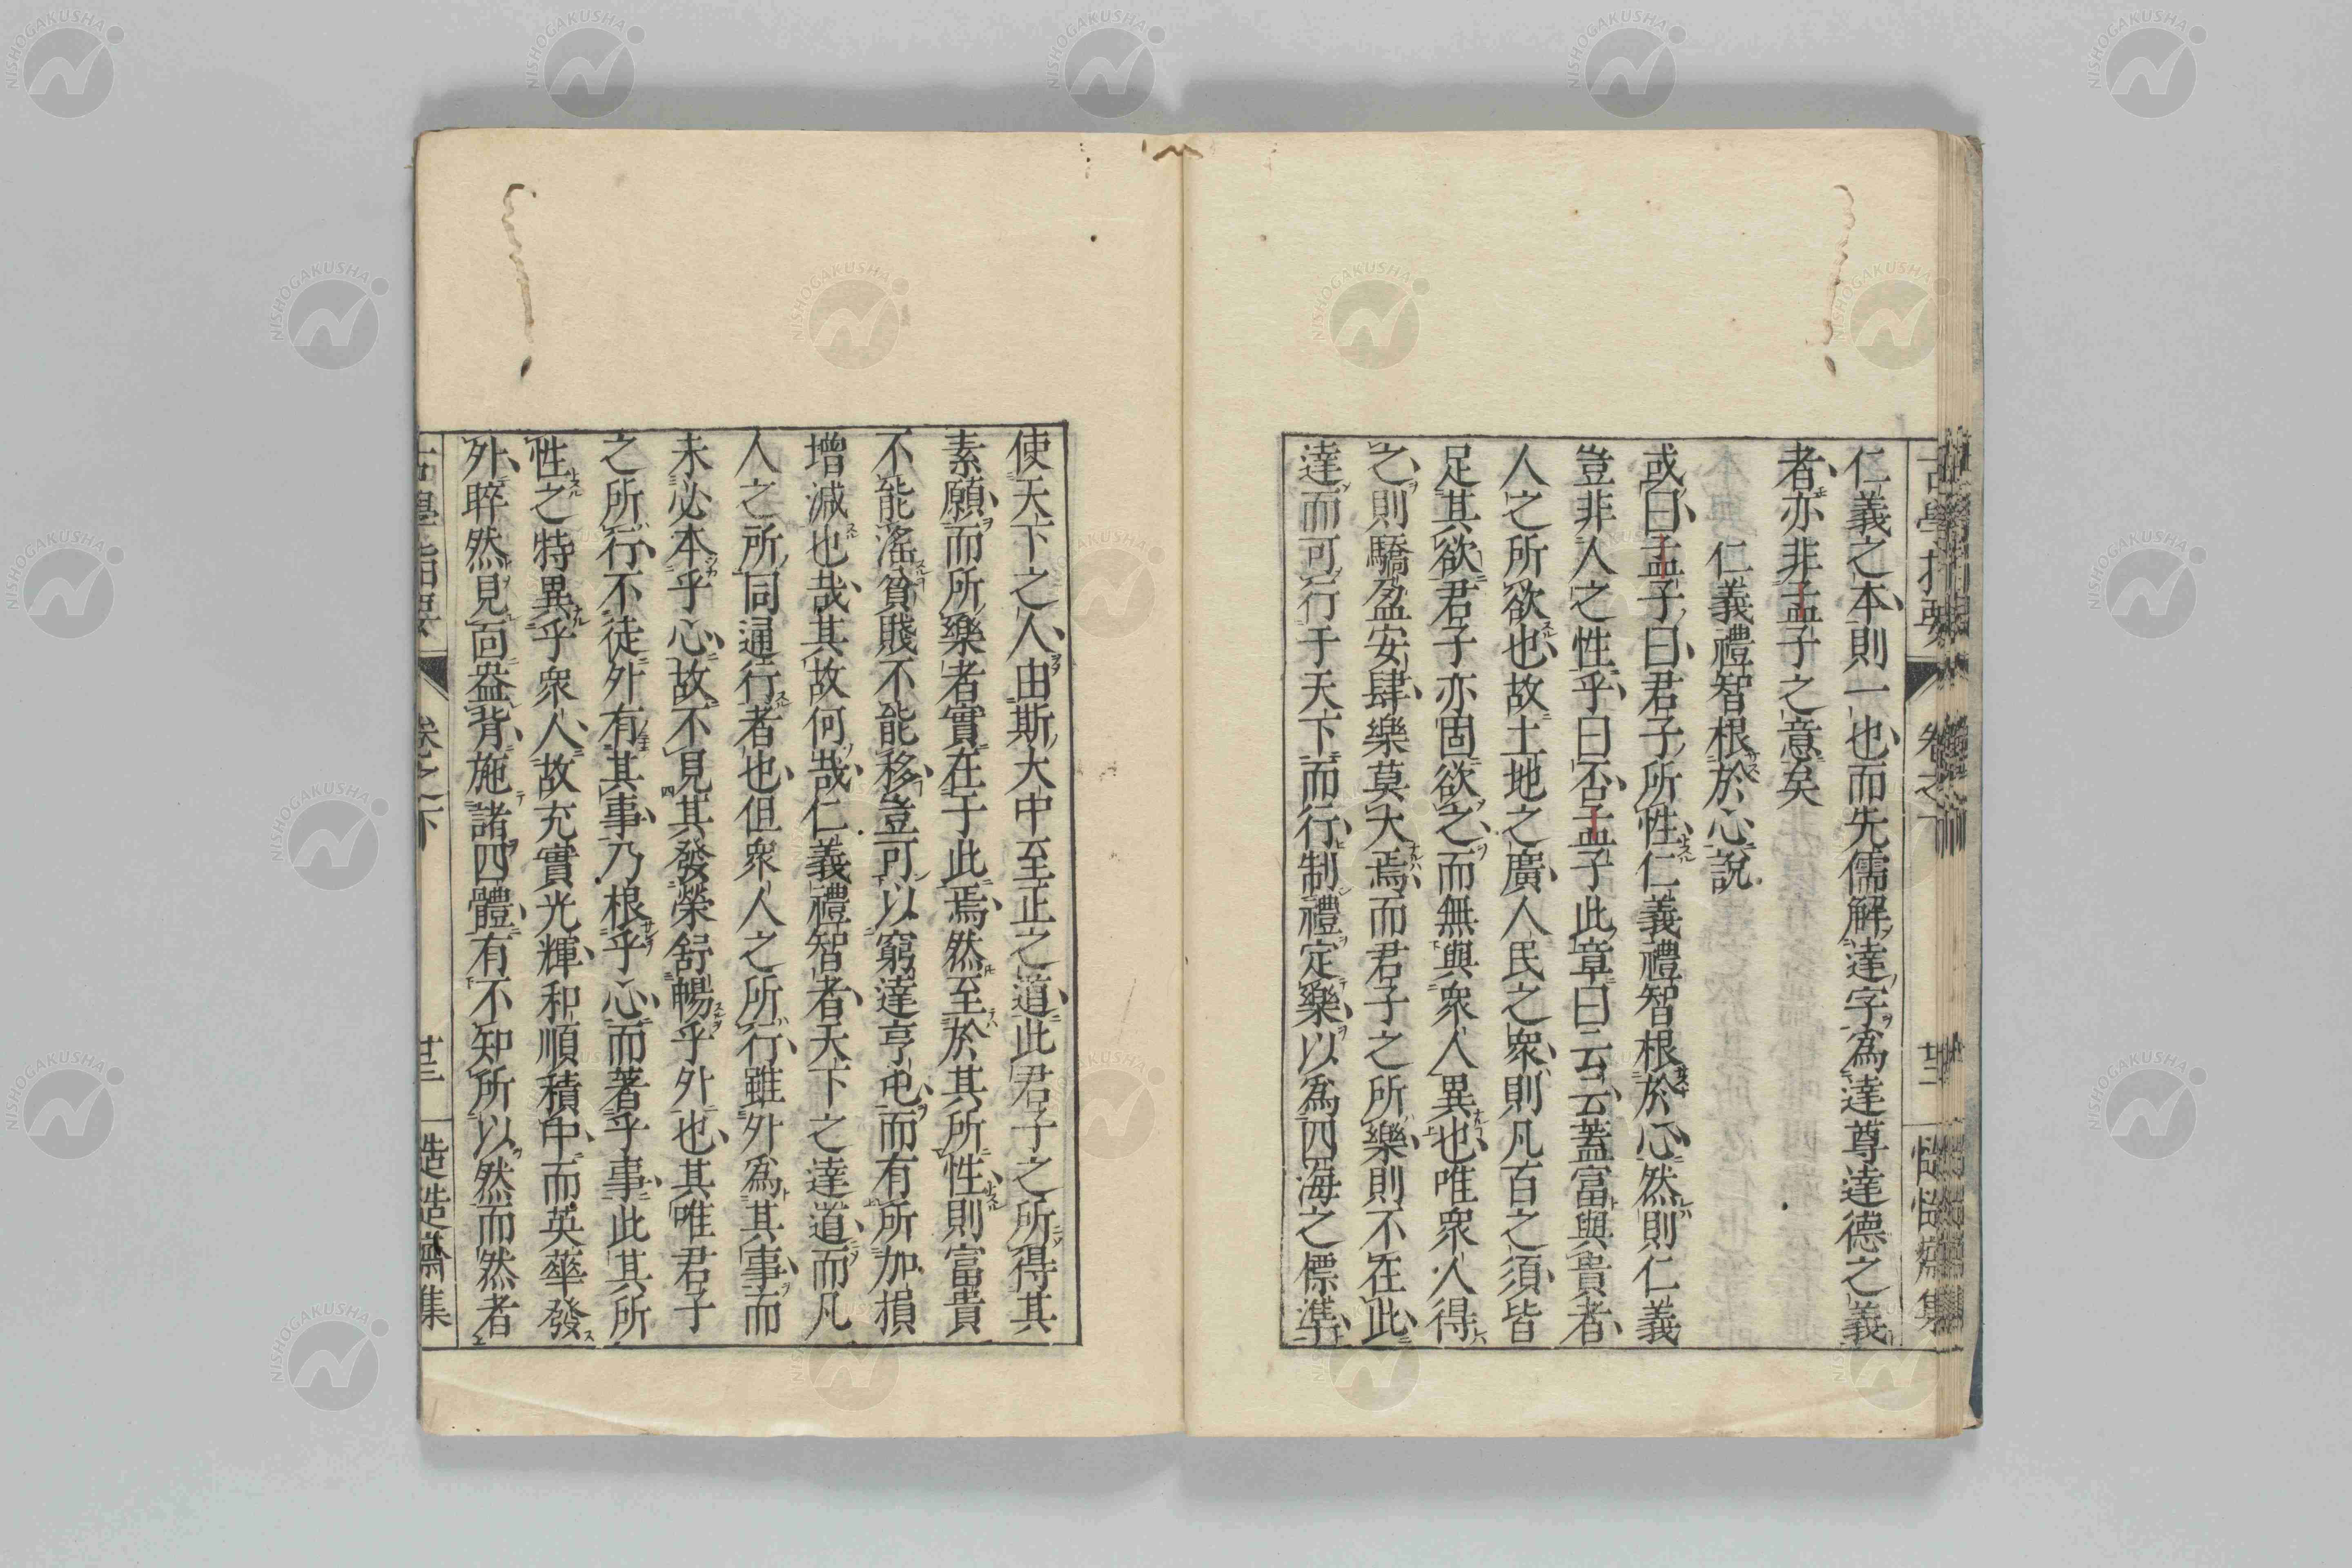 仁義之本則一也而先儒解達字為達尊達德之義
者亦非孟子之意矣
仁義禮智根於心說
或曰孟子曰君子所性仁義禮智根於心然則仁義
豈非人之性乎曰否孟子此章曰云云蓋富與貴者
人之所欲也故土地之廣人民之衆則凡百之須皆
足其欲君子亦固欲之而無與衆人異也唯衆人得
之則驕盈安肆樂莫大焉而君子之所樂則不在此
達而可行于天下而行制禮定樂以為四海之標準
使天下之人由斯大中至正之道此君子之所得其
素願而所樂者實在于此焉然至於其所性則富貴
不能滛貧賤不能移豈可以窮達亨屯而有所加損
增減也哉其故何哉仁義禮智者天下之達道而凡
人之所同通行者也但衆人之所行雖外為其事而
未必本乎心故不見其發榮舒暢乎外也其唯君子
之所行不徒外有其事乃根乎心而著乎事此其所
性之特異乎衆人故充實光輝和順積中而英華發
外睟然見面盎背施諸四體有不知所以然而然者
古學指要
卷之下
廿三
慥慥齋集
NISHOGAKUSHA